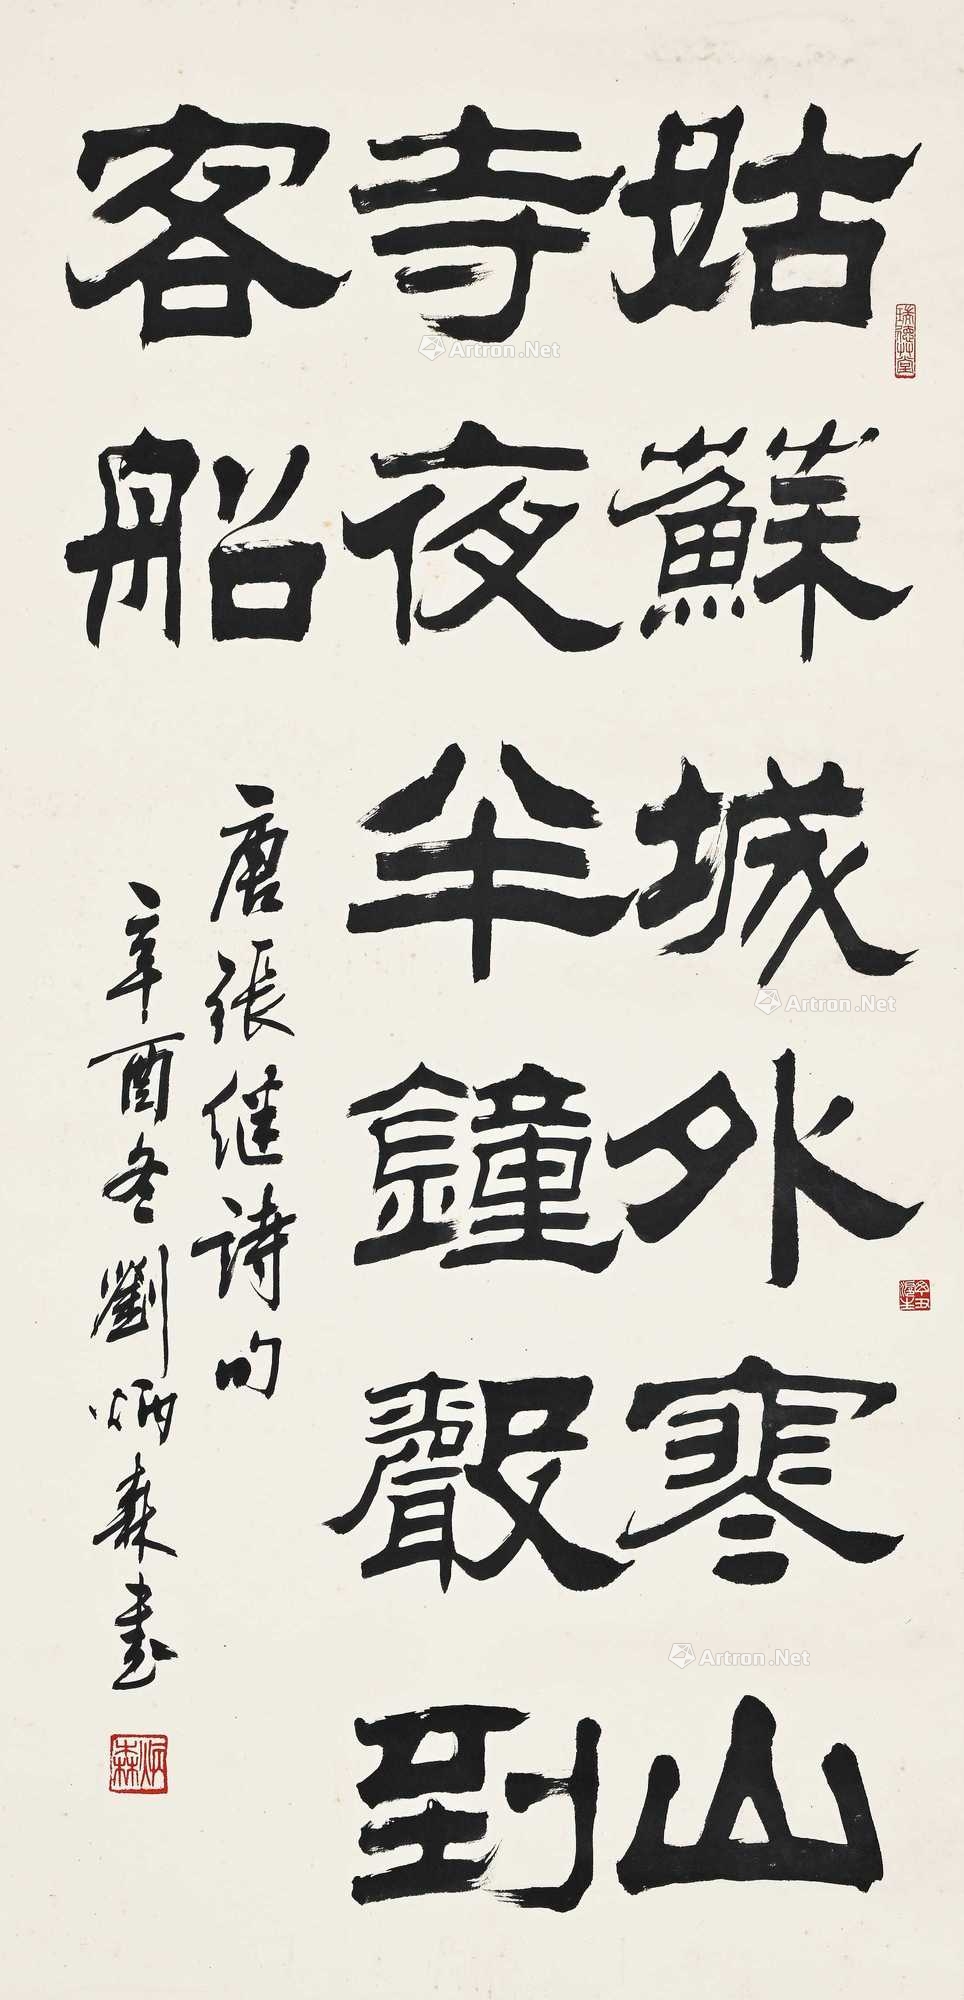 姑蘇城外寒山
寺夜半鐘聲到
客船
唐張继詩句
辛酉冬劉炳森書
炳森
辛丑
Artron.Net
Artron.Net
Artron.Net